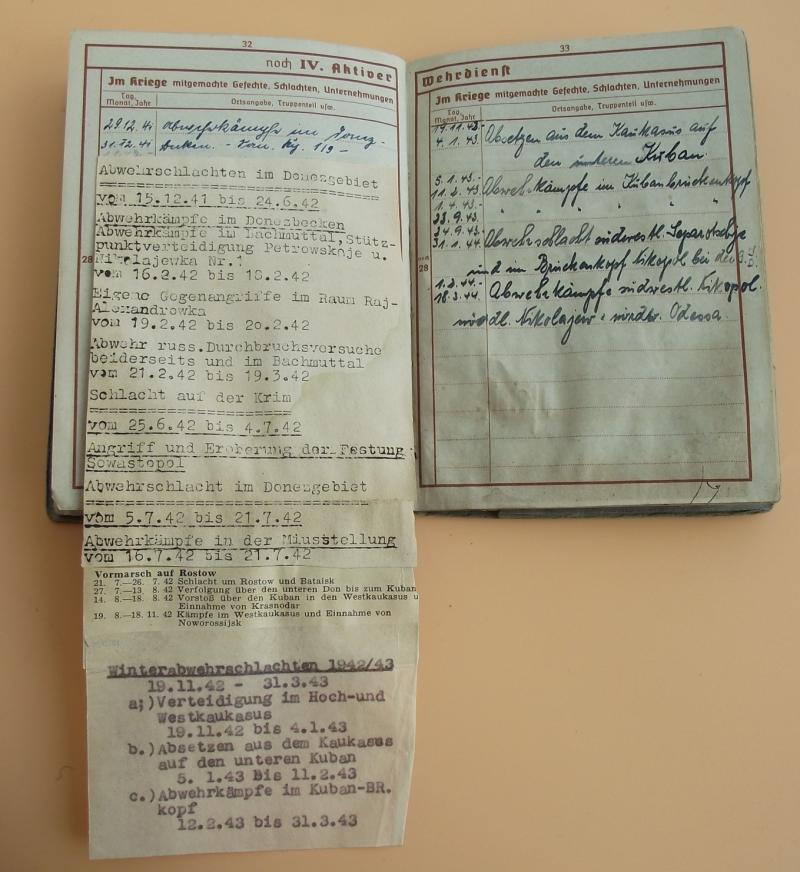 32
noch IV. Aktiver
Im Kriege mitgemachte Gefechte, Schlachten, Unternehmungen
Tag, Monat, Jahr
Ortsangabe, Truppenteil usw.
29.12.41 Abwehrkämpfe im Donez-
31.12.41 Becken.
Abwehrschlachten im Donezgebiet
vom 15.12.41 bis 24.6.42
Abwehrkämpfe im Donezbecken
Abwehrkämpfe im Bachmuttal, Stütz-
punktverteidigung Petrowskoje u.
Nikolajewka Nr.1
vom 16.2.42 bis 18.2.42
28
Eigene Gegenangriffe im Raum Raj-
Alexandrowka
vom 19.2.42 bis 20.2.42
Abwehr russ.Durchbruchsversuche
beiderseits und im Bachmuttal
vom 21.2.42 bis 19.3.42
Schlacht auf der Krim
vom 25.6.42 bis 4.7.42
Angriff und Eroberung der Festung
Sewastopol
Abwehrschlacht im Donezgebiet
vom 5.7.42 bis 21.7.42
Abwehrkämpfe in der Miusstellung
vom 16.7.42 bis 21.7.42
Vormarsch auf Rostow
21. 7.—26. 7. 42 Schlacht um Rostow und Bataisk
27. 7.—13. 8. 42 Verfolgung über den unteren Don bis zum Kuban
14. 8.—18. 8. 42 Vorstoß über den Kuban in den Westkaukasus u
Einnahme von Krasnodar
19. 8.—18. 11. 42 Kämpfe im Westkaukasus und Einnahme von
Noworossijsk
Winterabwehrschlachten 1942/43
19.11.42 - 31.3.43
a;)Verteidigung im Hoch-und
Westkaukasus
19.11.42 bis 4.1.43
b.)Absetzen aus dem Kaukasus
auf den unteren Kuban
5. 1.43 Bis 11.2.43
c.)Abwehrkämpfe im Kuban-BR.
kopf
12.2.43 bis 31.3.43
33
Wehrdienst
Im Kriege mitgemachte Gefechte, Schlachten, Unternehmungen
Tag, Monat, Jahr
Ortsangabe, Truppenteil usw.
19.11.42.- Absetzen aus dem Kaukasus auf
4.1.43.
den unteren Kuban
5.1.43.-
11.2.43. Abwehrkämpfe im Kubanbrückenkopf
1.4.43.- " " " " "
23.9.43.
24.9.43.- Abwehrschlacht südwestl.
31.1.44
28
und im Brückenkopf Nikopol bei der
1.2.44.- Abwehrkämpfe südwestl. Nikopol.
18.3.44.
nördl. Nikolajew, Odessa.